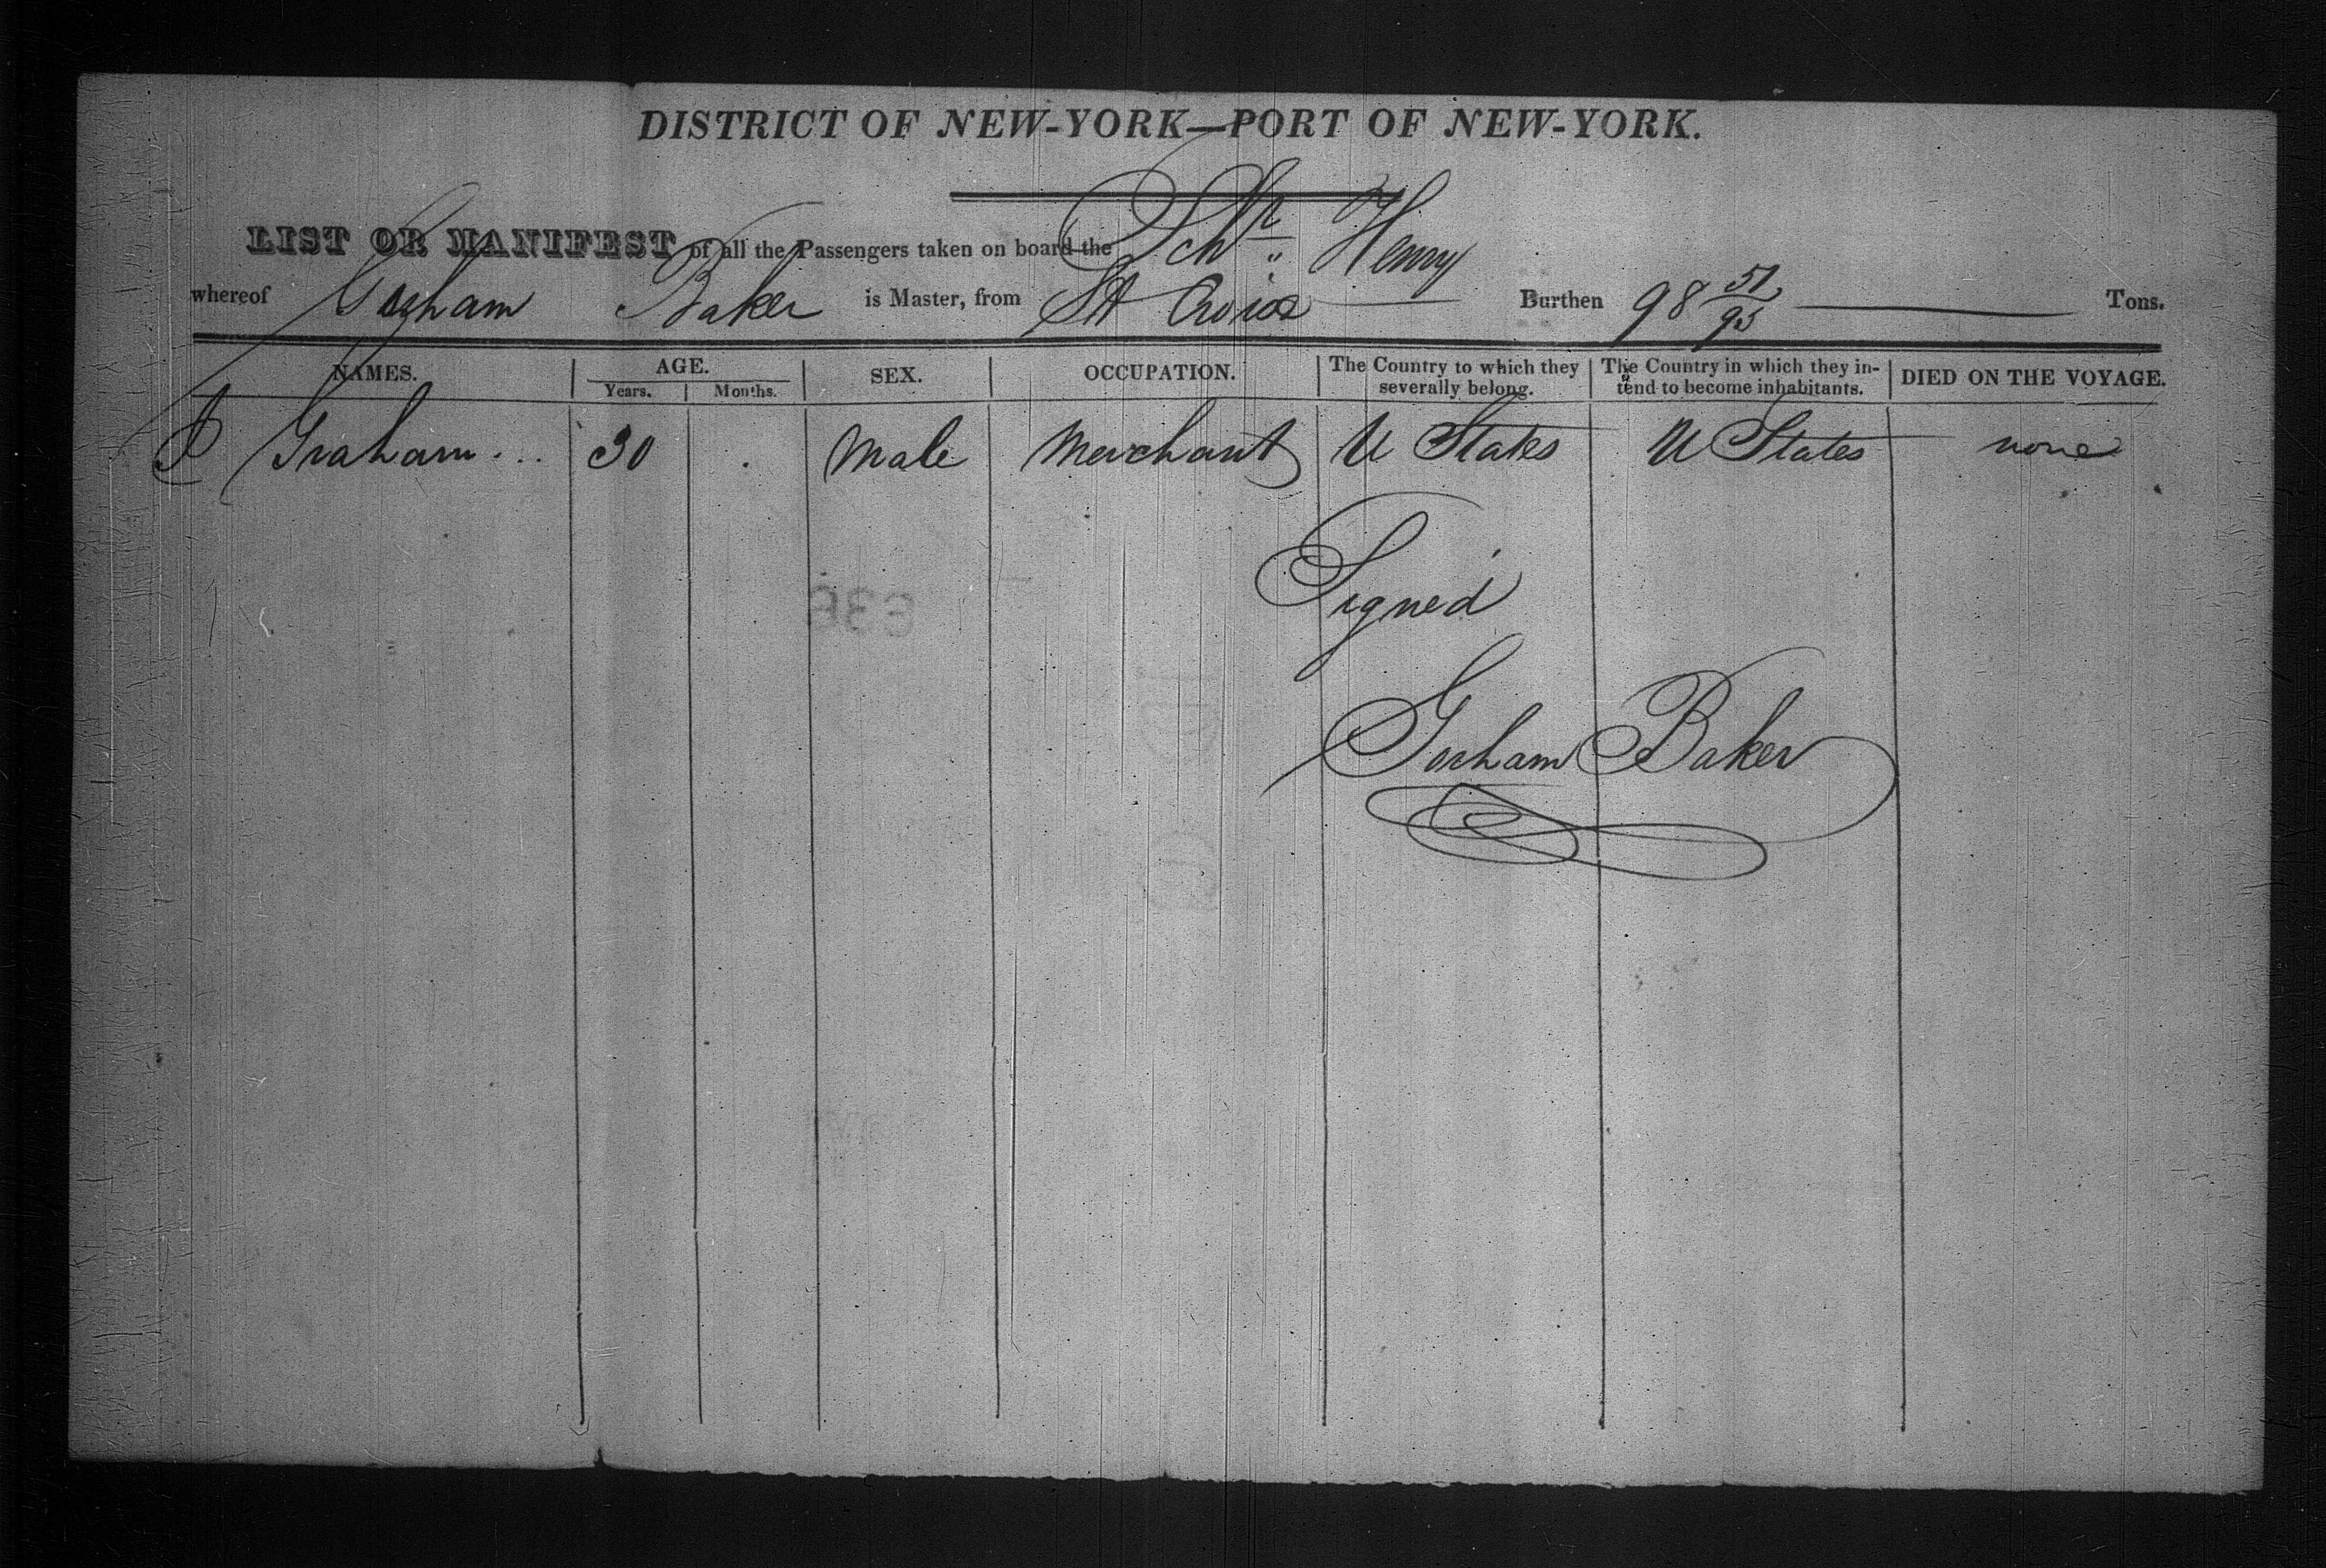 DISTRICT OF NEW-YORK—PORT OF NEW-YORK.
LIST OR MANIFEST of all the Passengers taken on board the Schr Henry
whereof Gorham Baker is Master, from St Croix Burthen 98 51/95 Tons.
NAMES. AGE. Years. Months. SEX. OCCUPATION. The Country to which they severally belong. The Country in which they intend to become inhabitants. DIED ON THE VOYAGE.
Graham... 30 Male Merchant U States U States none
Signed
Gorham Baker